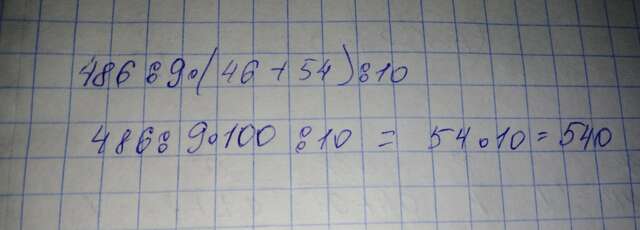 486:9·(46+54):10
486:9·100:10 = 54·10=540